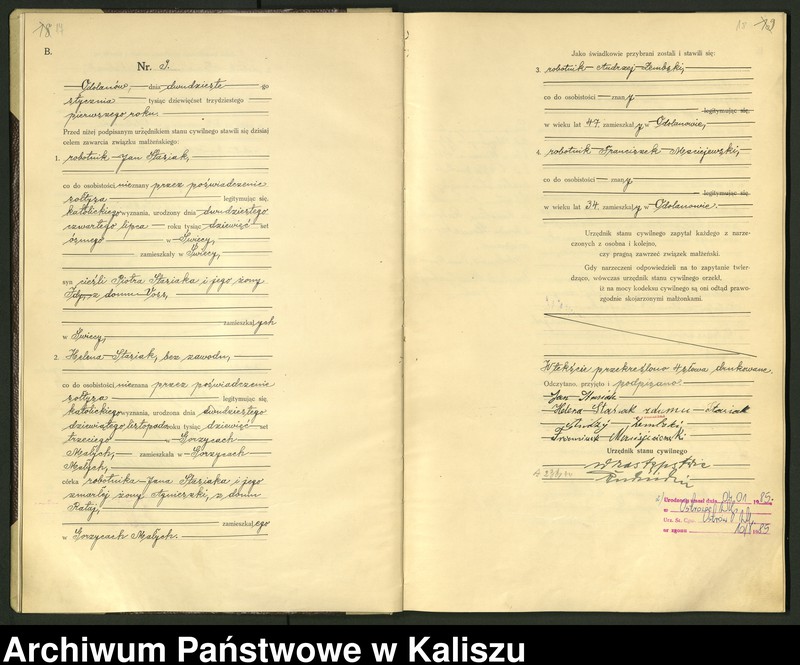 B.
Nr. 9.
Odolanów, dnia dwudzieste go
stycznia tysiąc dziewięćset trzydziestego
pierwszego roku.
Przed niżej podpisanym urzędnikiem stanu cywilnego stawili się dzisiaj
celem zawarcia związku małżeńskiego:
1. robotnik Jan Stasiak,
co do osobistości nieznany przez poświadczenie
sołtysa legitymując się,
katolickiego wyznania, urodzony dnia dwudziestego
czwartego lipca roku tysiąc dziewięć set
ósmego w Świecy,
zamieszkały w Świecy,
syn cieśli Piotra Stasiaka i jego żony
z domu
zamieszkałych
w Świecy,
2. Helena Stasiak, bez zawodu,
co do osobistości nieznana przez poświadczenie
sołtysa legitymując się,
katolickiego wyznania, urodzona dnia dwudziestego
dziewiątego listopada roku tysiąc dziewięć set
trzeciego w Gorzycach
Małych, zamieszkała w Gorzycach
Małych,
córka robotnika Jana Stasiaka i jego
zmarłej żony Agnieszki, z domu
Rataj,
zamieszkałego
w Gorzycach Małych.
Jako świadkowie przybrani zostali i stawili się:
3. robotnik Andrzej Zembski,
co do osobistości znany
legitymując się,
w wieku lat 47, zamieszkały w Odolanowie,
4. robotnik Franciszek Maciejewski,
co do osobistości znany
legitymując się,
w wieku lat 34, zamieszkały w Odolanowie.
Urzędnik stanu cywilnego zapytał każdego z narze-
czonych z osobna i kolejno,
czy pragną zawrzeć związek małżeński.
Gdy narzeczeni odpowiedzieli na to zapytanie twier-
dząco, wówczas urzędnik stanu cywilnego orzekł,
iż na mocy kodeksu cywilnego są oni odtąd prawo-
zgodnie skojarzonymi małżonkami.
W tekście przekreślono 4 słowa drukowane.
Odczytano, przyjęto i podpisano.
Jan Stasiak
Helena Stasiak z domu Stasiak
Andrzej Zembski,
Franciszek Maciejewski
Urzędnik stanu cywilnego
w zastępstwie
01. 1985
w Ostrowie Wlkp.
Urz. St. Cyw. Ostrów Wlkp.
nr zgonu 1985
Archiwum Państwowe w Kaliszu